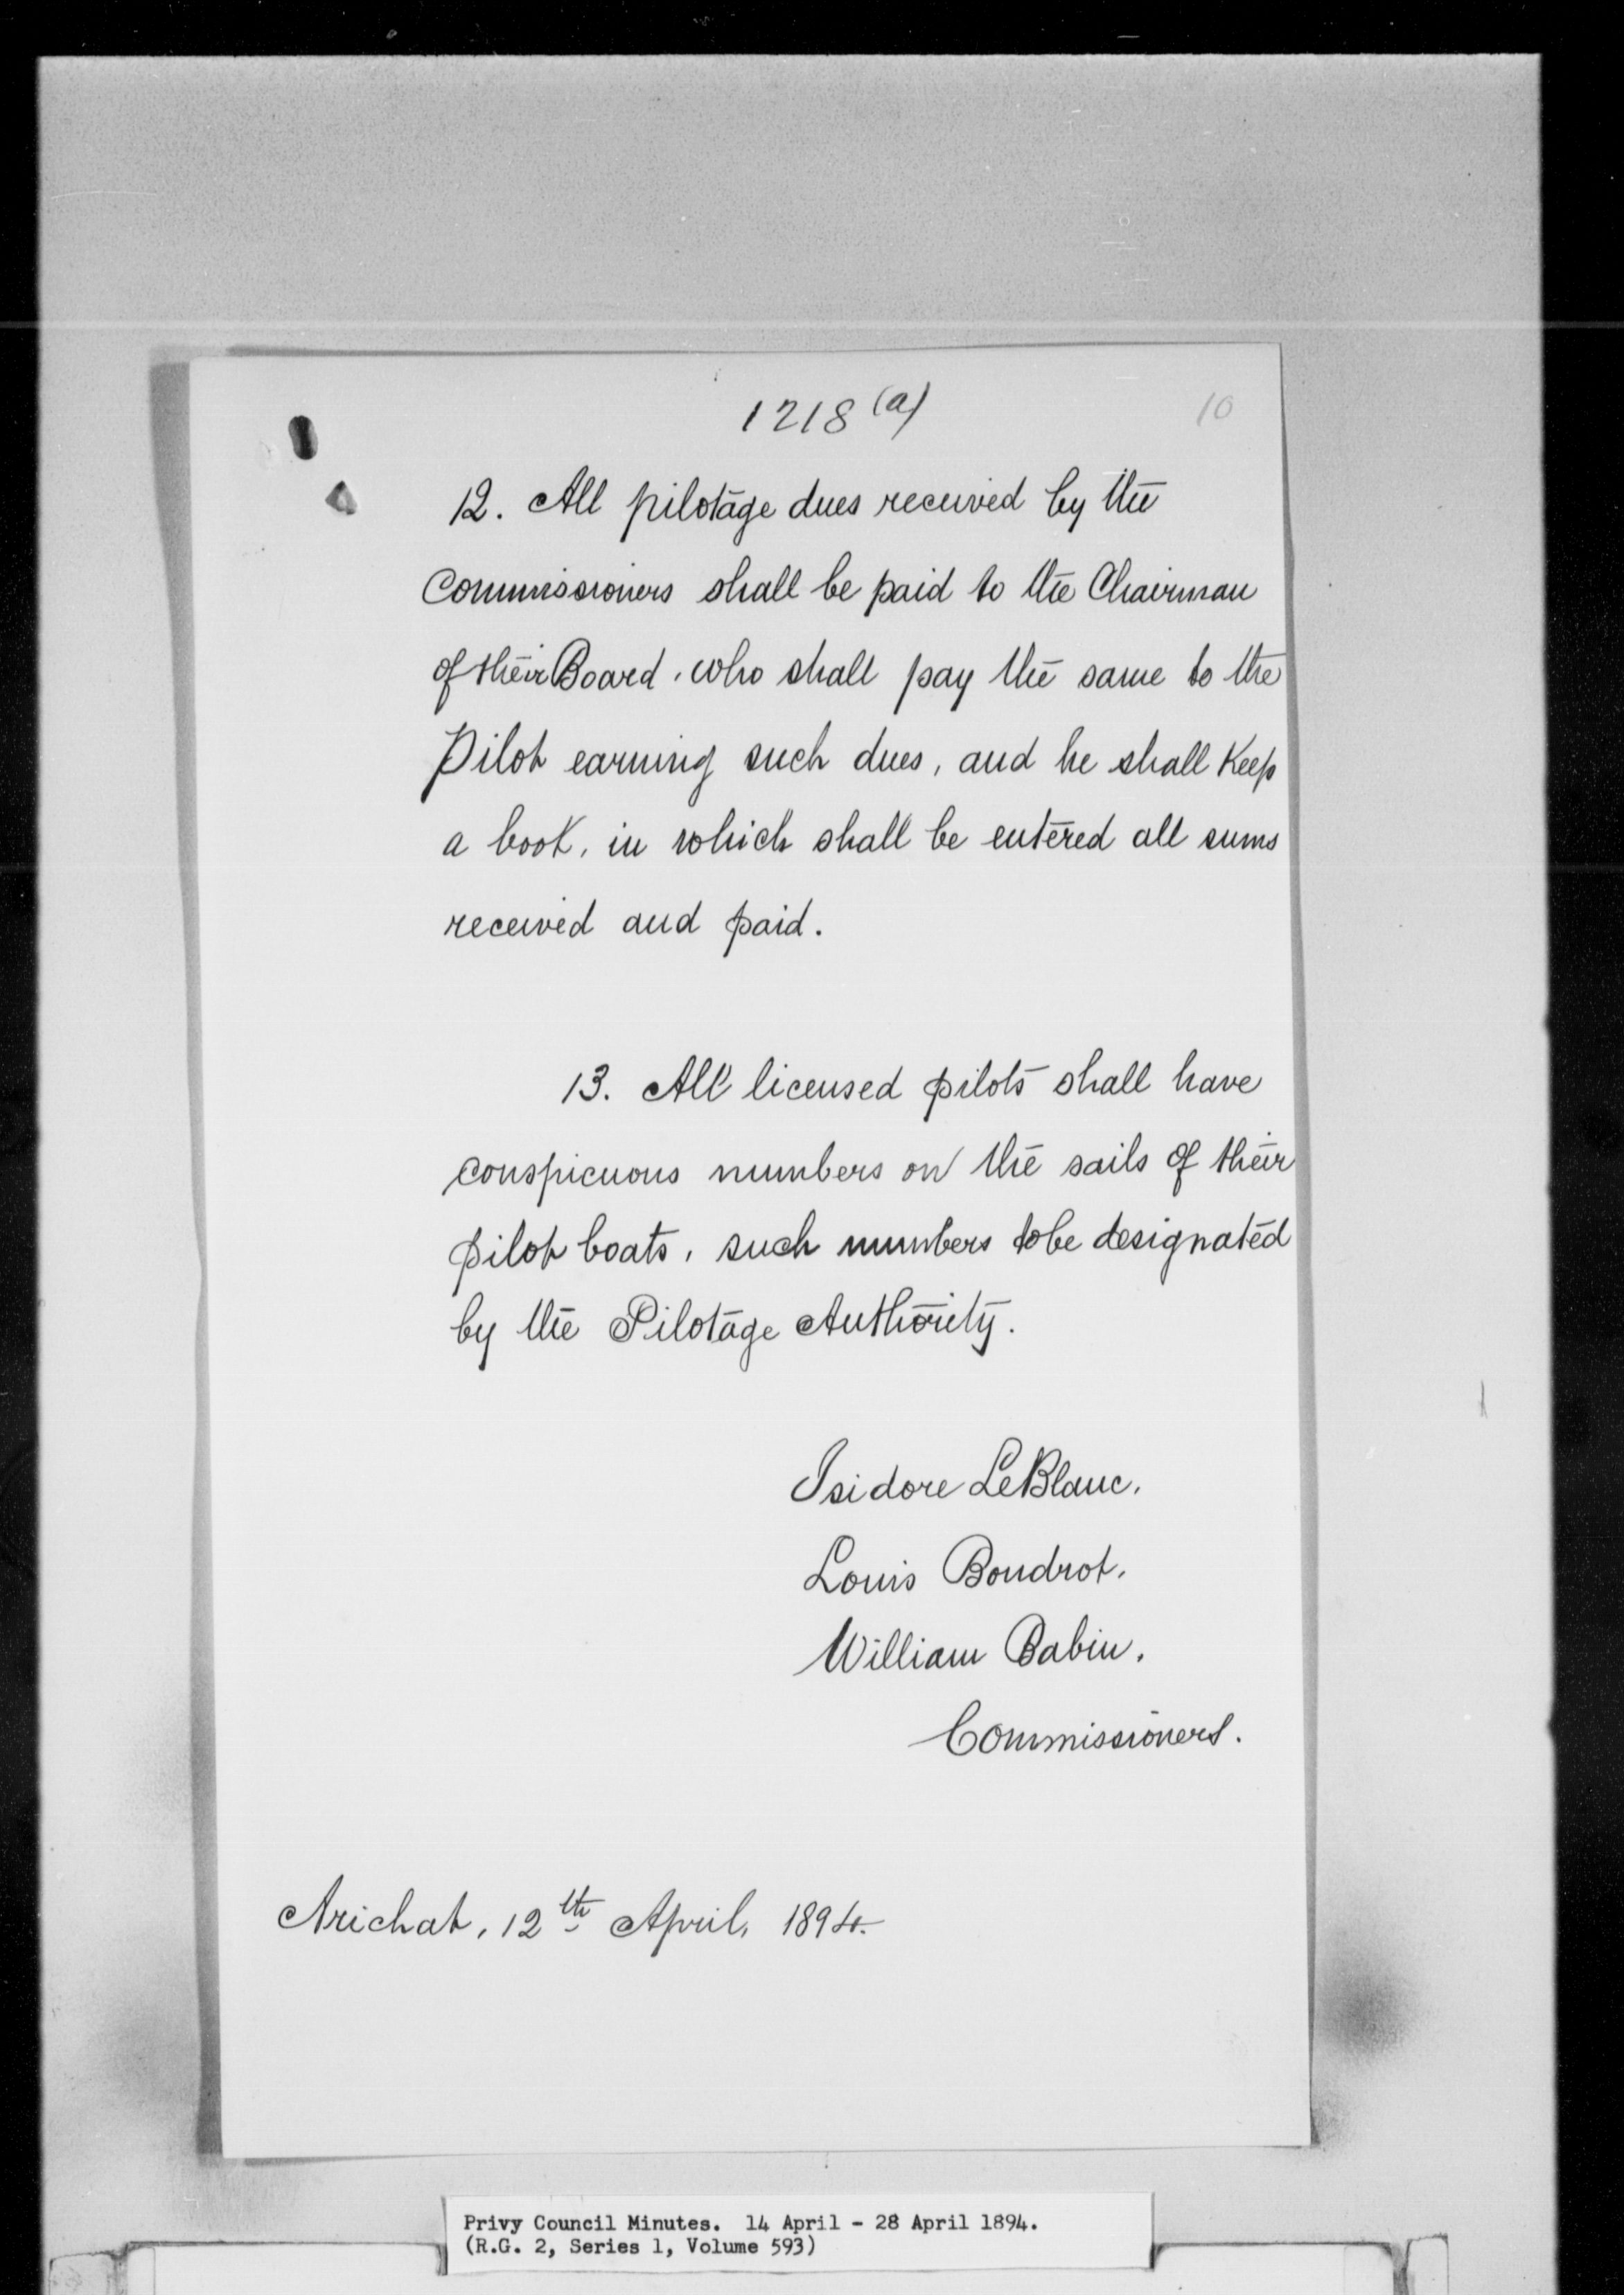 1218 (a)
10
12. All pilotage dues received by the
Commissioners shall be paid to the Chairman
of their Board, who shall pay the same to the
Pilot earning such dues, and he shall keep
a book, in which shall be entered all sums
received and paid.
13. All licensed pilots shall have
conspicuous numbers on the sails of their
pilot boats, such numbers to be designated
by the Pilotage Authority.
Isidore LeBlanc.
Louis Boudrot.
William Babin.
Commissioners.
Arichat, 12th April, 1894.
Privy Council Minutes. 14 April - 28 April 1894.
(R.G. 2, Series 1, Volume 593)